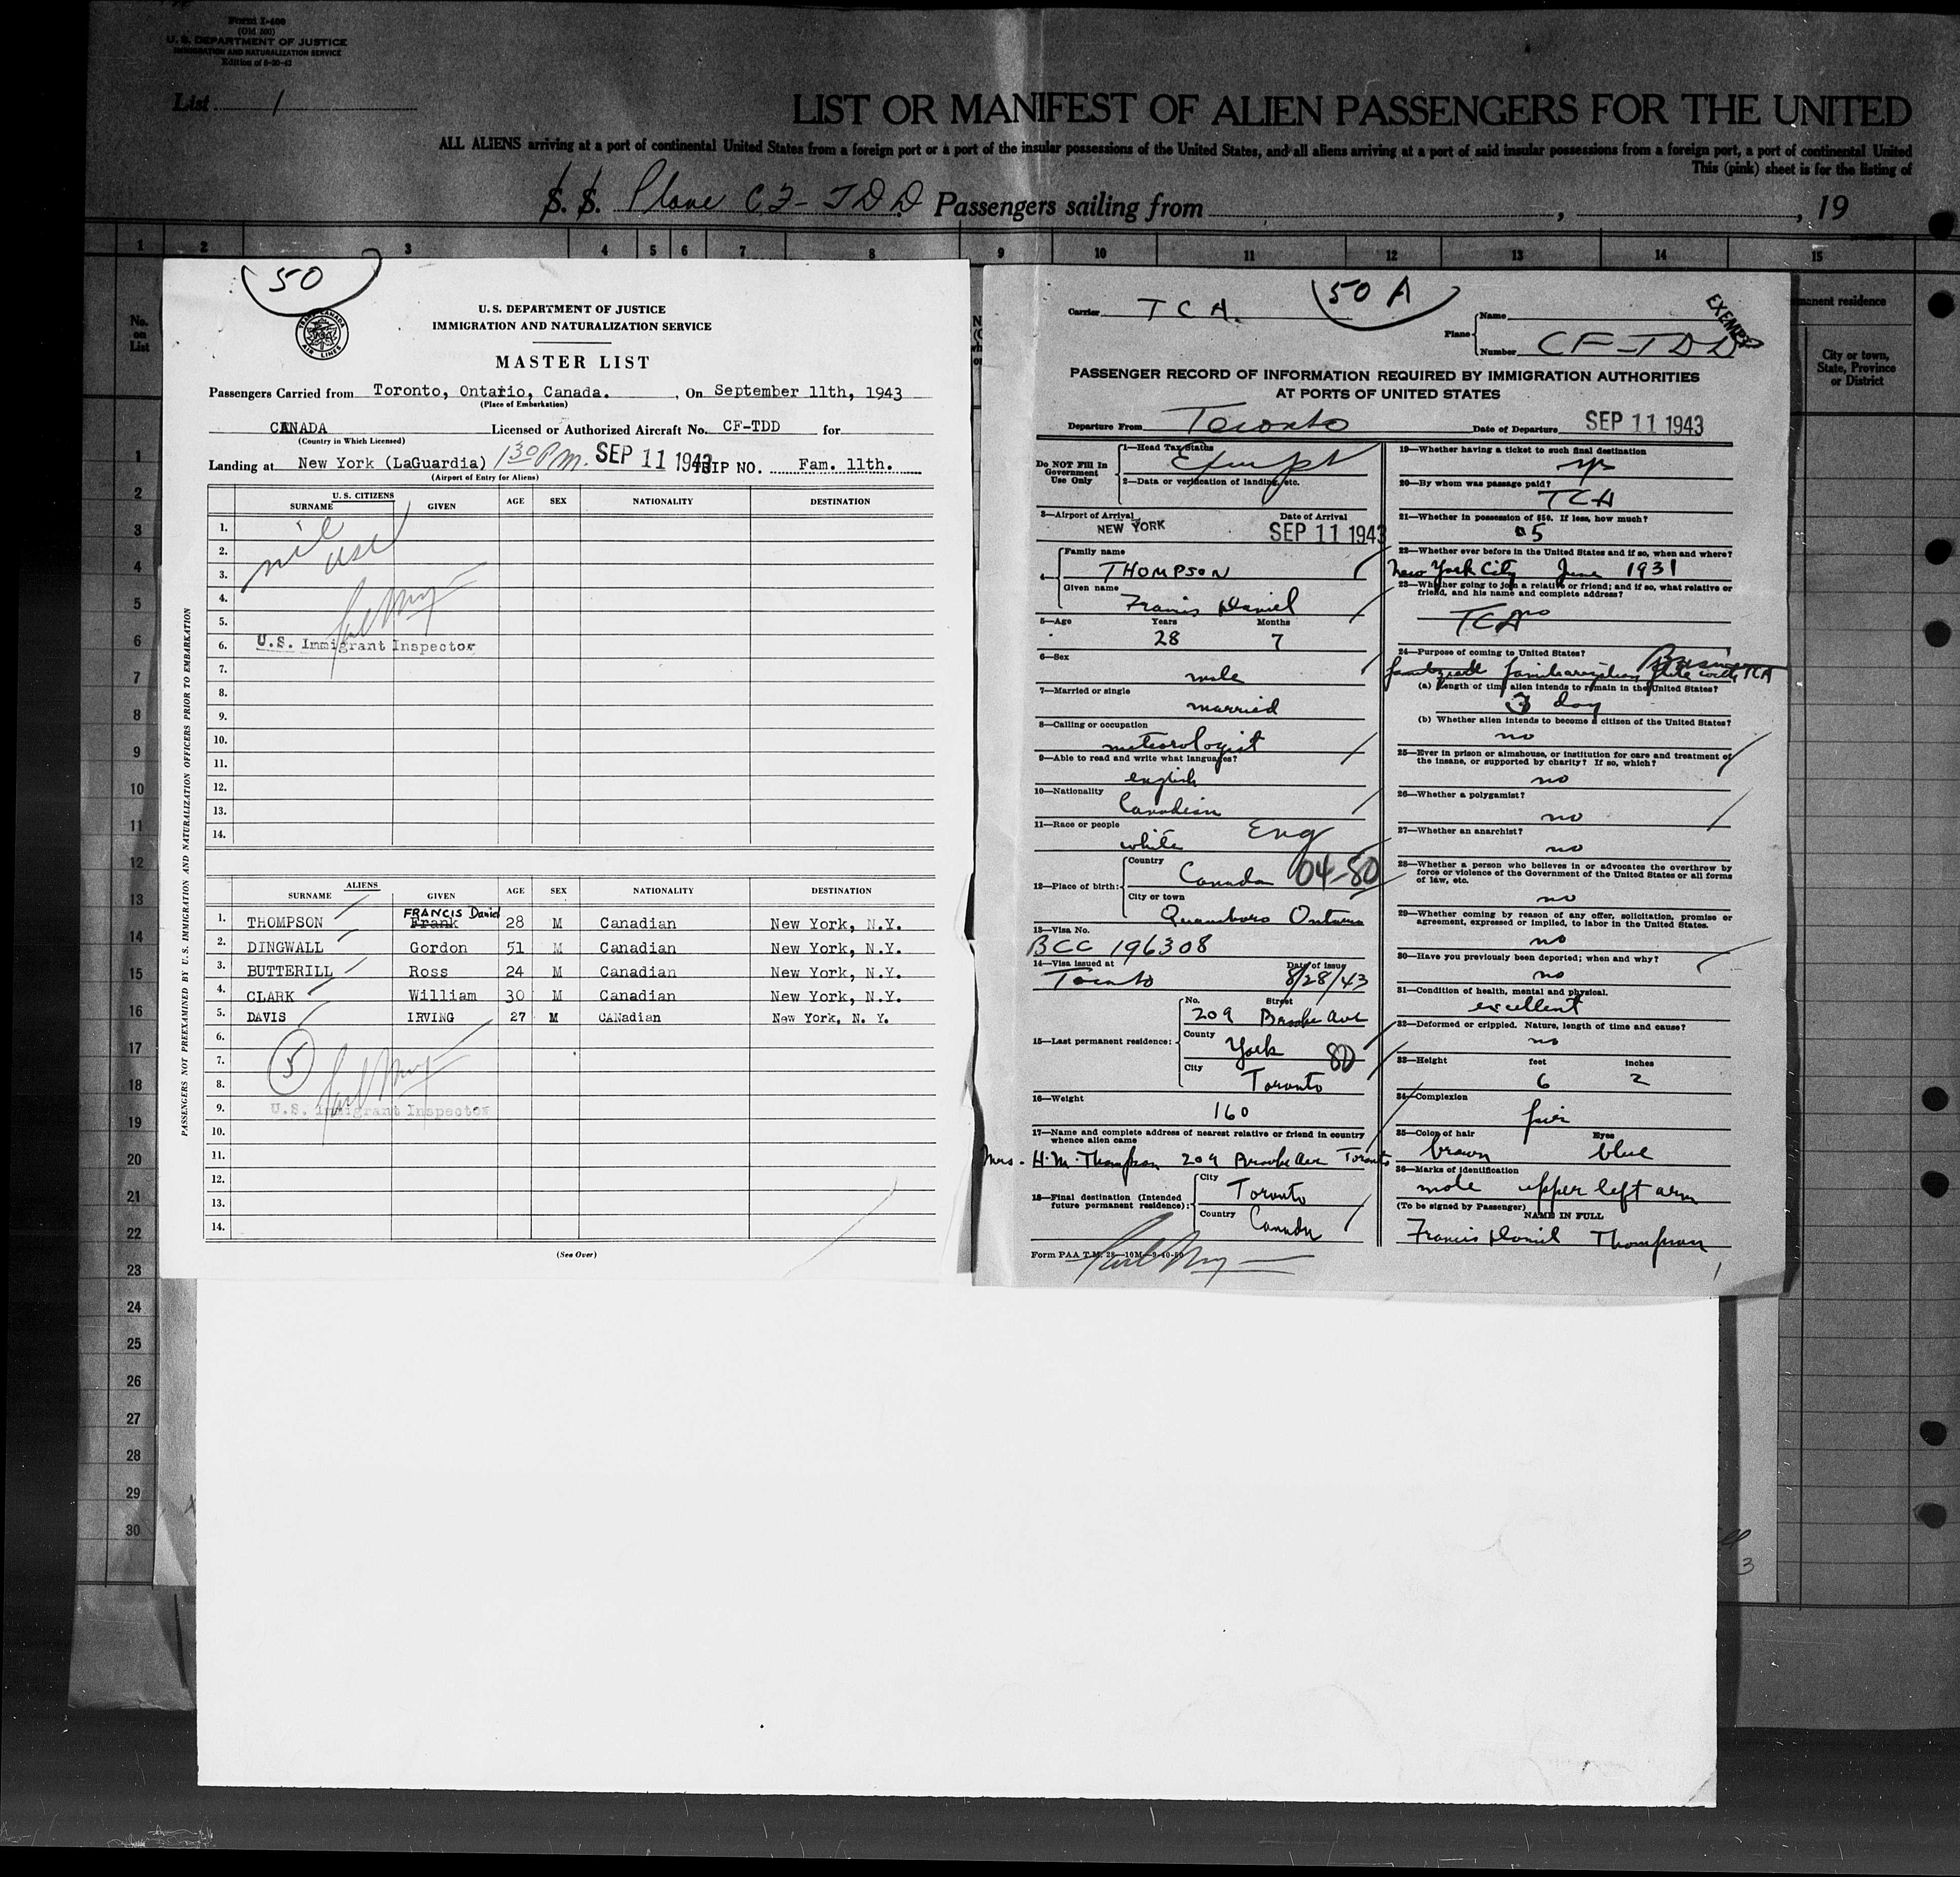 Form I-400
(Old 500)
U. S. DEPARTMENT OF JUSTICE
IMMIGRATION AND NATURALIZATION SERVICE
Edition of 8-20-43
List 1
LIST OR MANIFEST OF ALIEN PASSENGERS FOR THE UNITED
ALL ALIENS arriving at a port of continental United States from a foreign port or a port of the insular possessions of the United States, and all aliens arriving at a port of said insular possessions from a foreign port, a port of continental United
This (pink) sheet is for the listing of
S. S. Plane CF-TDD Passengers sailing from , , 19
1 2 3 4 5 6 7 8 9 10 11 12 13 14 15
No. on List
manent residence
City or town, State, Province or District
1
2
3
4
5
6
7
8
9
10
11
12
13
14
15
16
17
18
19
20
21
22
23
24
25
26
27
28
29
30
50
TRANS-CANADA AIR LINES
U. S. DEPARTMENT OF JUSTICE
IMMIGRATION AND NATURALIZATION SERVICE
MASTER LIST
Passengers Carried from Toronto, Ontario, Canada. , On September 11th, 1943
(Place of Embarkation)
CANADA Licensed or Authorized Aircraft No. CF-TDD for
(Country in Which Licensed)
Landing at New York (LaGuardia) 1 30 P.M. SEP 11 1943 TRIP NO. Fam. 11th.
(Airport of Entry for Aliens)
U.S. CITIZENS
SURNAME GIVEN AGE SEX NATIONALITY DESTINATION
1.
2.
3.
4.
5.
6.
7.
8.
9.
10.
11.
12.
13.
14.
nil
usc
U.S. Immigrant Inspector
PASSENGERS NOT PREEXAMINED BY U.S. IMMIGRATION AND NATURALIZATION OFFICERS PRIOR TO EMBARKATION
ALIENS
SURNAME GIVEN AGE SEX NATIONALITY DESTINATION
FRANCIS Daniel
1. THOMPSON Frank 28 M Canadian New York, N.Y.
2. DINGWALL Gordon 51 M Canadian New York, N.Y.
3. BUTTERILL Ross 24 M Canadian New York, N.Y.
4. CLARK William 30 M Canadian New York, N.Y.
5. DAVIS IRVING 27 M CANadian New York, N. Y.
6.
7.
8.
9.
10.
11.
12.
13.
14.
5
U.S. Immigrant Inspector
(See Over)
50 A
Carrier T C A.
Plane Name
Number CF-TDD
EXEMPT
PASSENGER RECORD OF INFORMATION REQUIRED BY IMMIGRATION AUTHORITIES
AT PORTS OF UNITED STATES
Departure From Toronto Date of Departure SEP 11 1943
Do NOT Fill In Government Use Only
1—Head Tax Status
Exempt
2—Data or verification of landing, etc.
3—Airport of Arrival Date of Arrival
NEW YORK SEP 11 1943
4— Family name
THOMPSON
Given name
Francis Daniel
5—Age Years Months
28 7
6—Sex
male
7—Married or single
married
8—Calling or occupation
meteorologist
9—Able to read and write what languages?
english
10—Nationality
Canadian
11—Race or people
white Eng
12—Place of birth: Country
Canada 04-80
City or town
Queensboro Ontario
13—Visa No.
BCC 196308
14—Visa issued at Date of issue
Toronto 8/28/43
15—Last permanent residence: No. Street
209 Brooke Ave
County
York 80
City
Toronto
16—Weight
160
17—Name and complete address of nearest relative or friend in country
whence alien came
Mrs. H. M. Thompson 209 Brooke Ave Toronto
18—Final destination (Intended future permanent residence): City
Toronto
Country
Canada
Form PAA T.M. 28—10M—9-40-50
19—Whether having a ticket to such final destination
yes
20—By whom was passage paid?
TCA
21—Whether in possession of $50. If less, how much?
22—Whether ever before in the United States and if so, when and where?
New York City June 1931
23—Whether going to join a relative or friend; and if so, what relative or
friend, and his name and complete address?
TCA no
24—Purpose of coming to United States? Business
familiarization flite with TCA
(a) Length of time alien intends to remain in the United States?
day
(b) Whether alien intends to become a citizen of the United States?
no
25—Ever in prison or almshouse, or institution for care and treatment of
the insane, or supported by charity? If so, which?
no
26—Whether a polygamist?
no
27—Whether an anarchist?
no
28—Whether a person who believes in or advocates the overthrow by
force or violence of the Government of the United States or all forms
of law, etc.
no
29—Whether coming by reason of any offer, solicitation, promise or
agreement, expressed or implied, to labor in the United States.
no
30—Have you previously been deported; when and why?
no
31—Condition of health, mental and physical.
excellent
32—Deformed or crippled. Nature, length of time and cause?
no
33—Height feet inches
6 2
34—Complexion
fair
35—Color of hair Eyes
brown blue
36—Marks of identification
mole upper left arm
(To be signed by Passenger)
NAME IN FULL
Francis Daniel Thompson